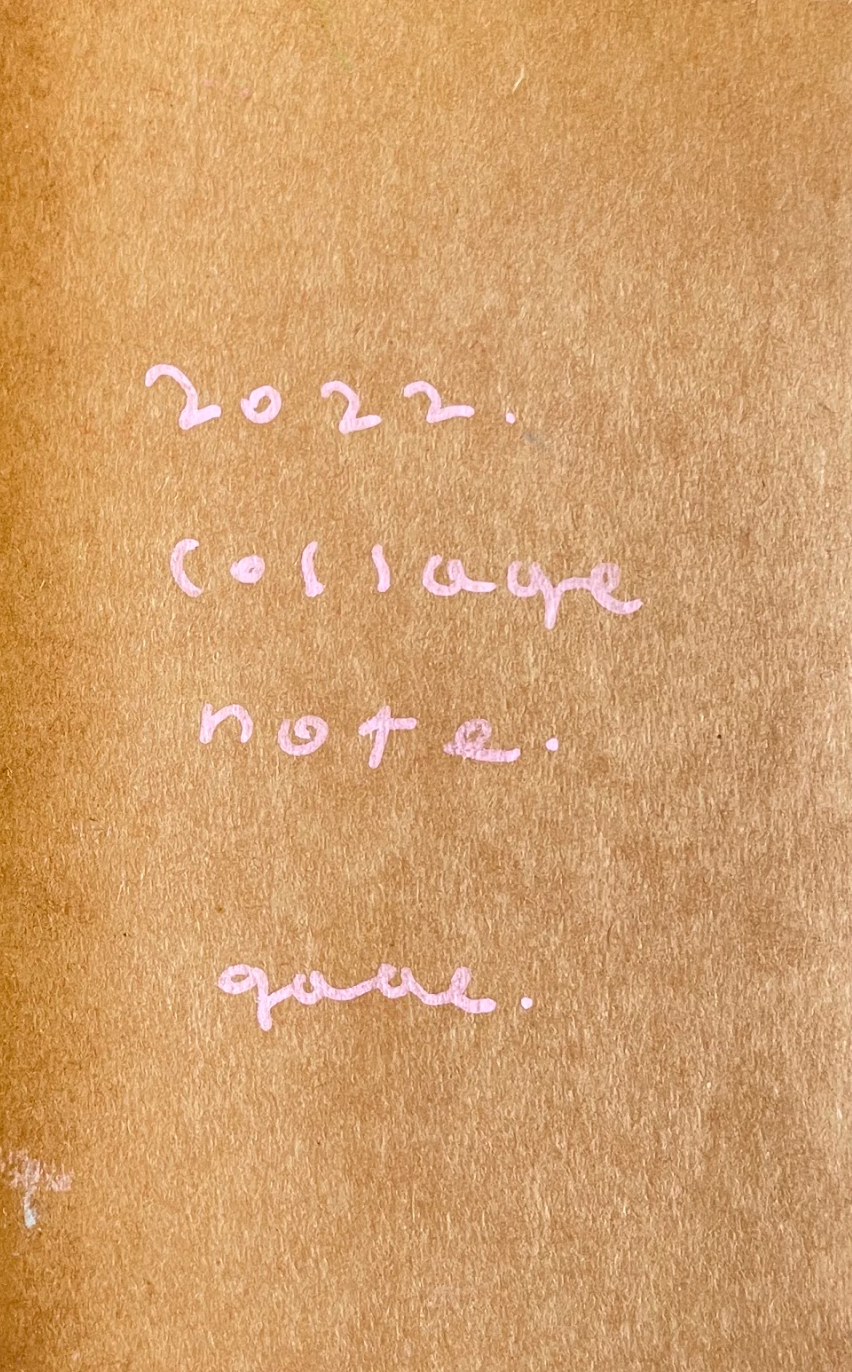 2022.
collage
note.
gaae.